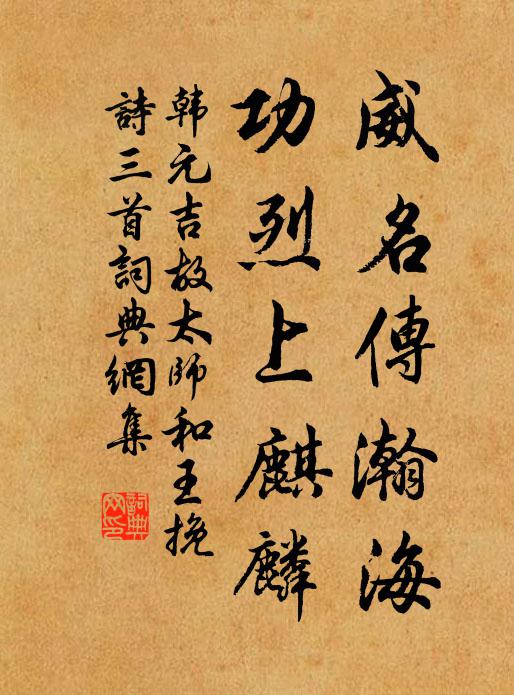 威名傳瀚海
功烈上麒麟
韩元吉故太師和王挽
詩三首詞典網集
詞典網印